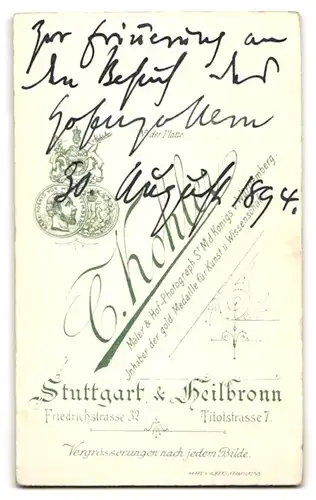 Zur Erinnerung an
den Besuch des
Hohenzollern
30. August 1894.
der Platte
Maler & Hof-Photograph Sr. M. d. Königs v. Württemberg
Inhaber der gold. Medaille für Kunst u. Wissenschaft
Stuttgart & Heilbronn
Friedrichstrasse 32 Titotstrasse 7.
Vergrösserungen nach jedem Bilde.